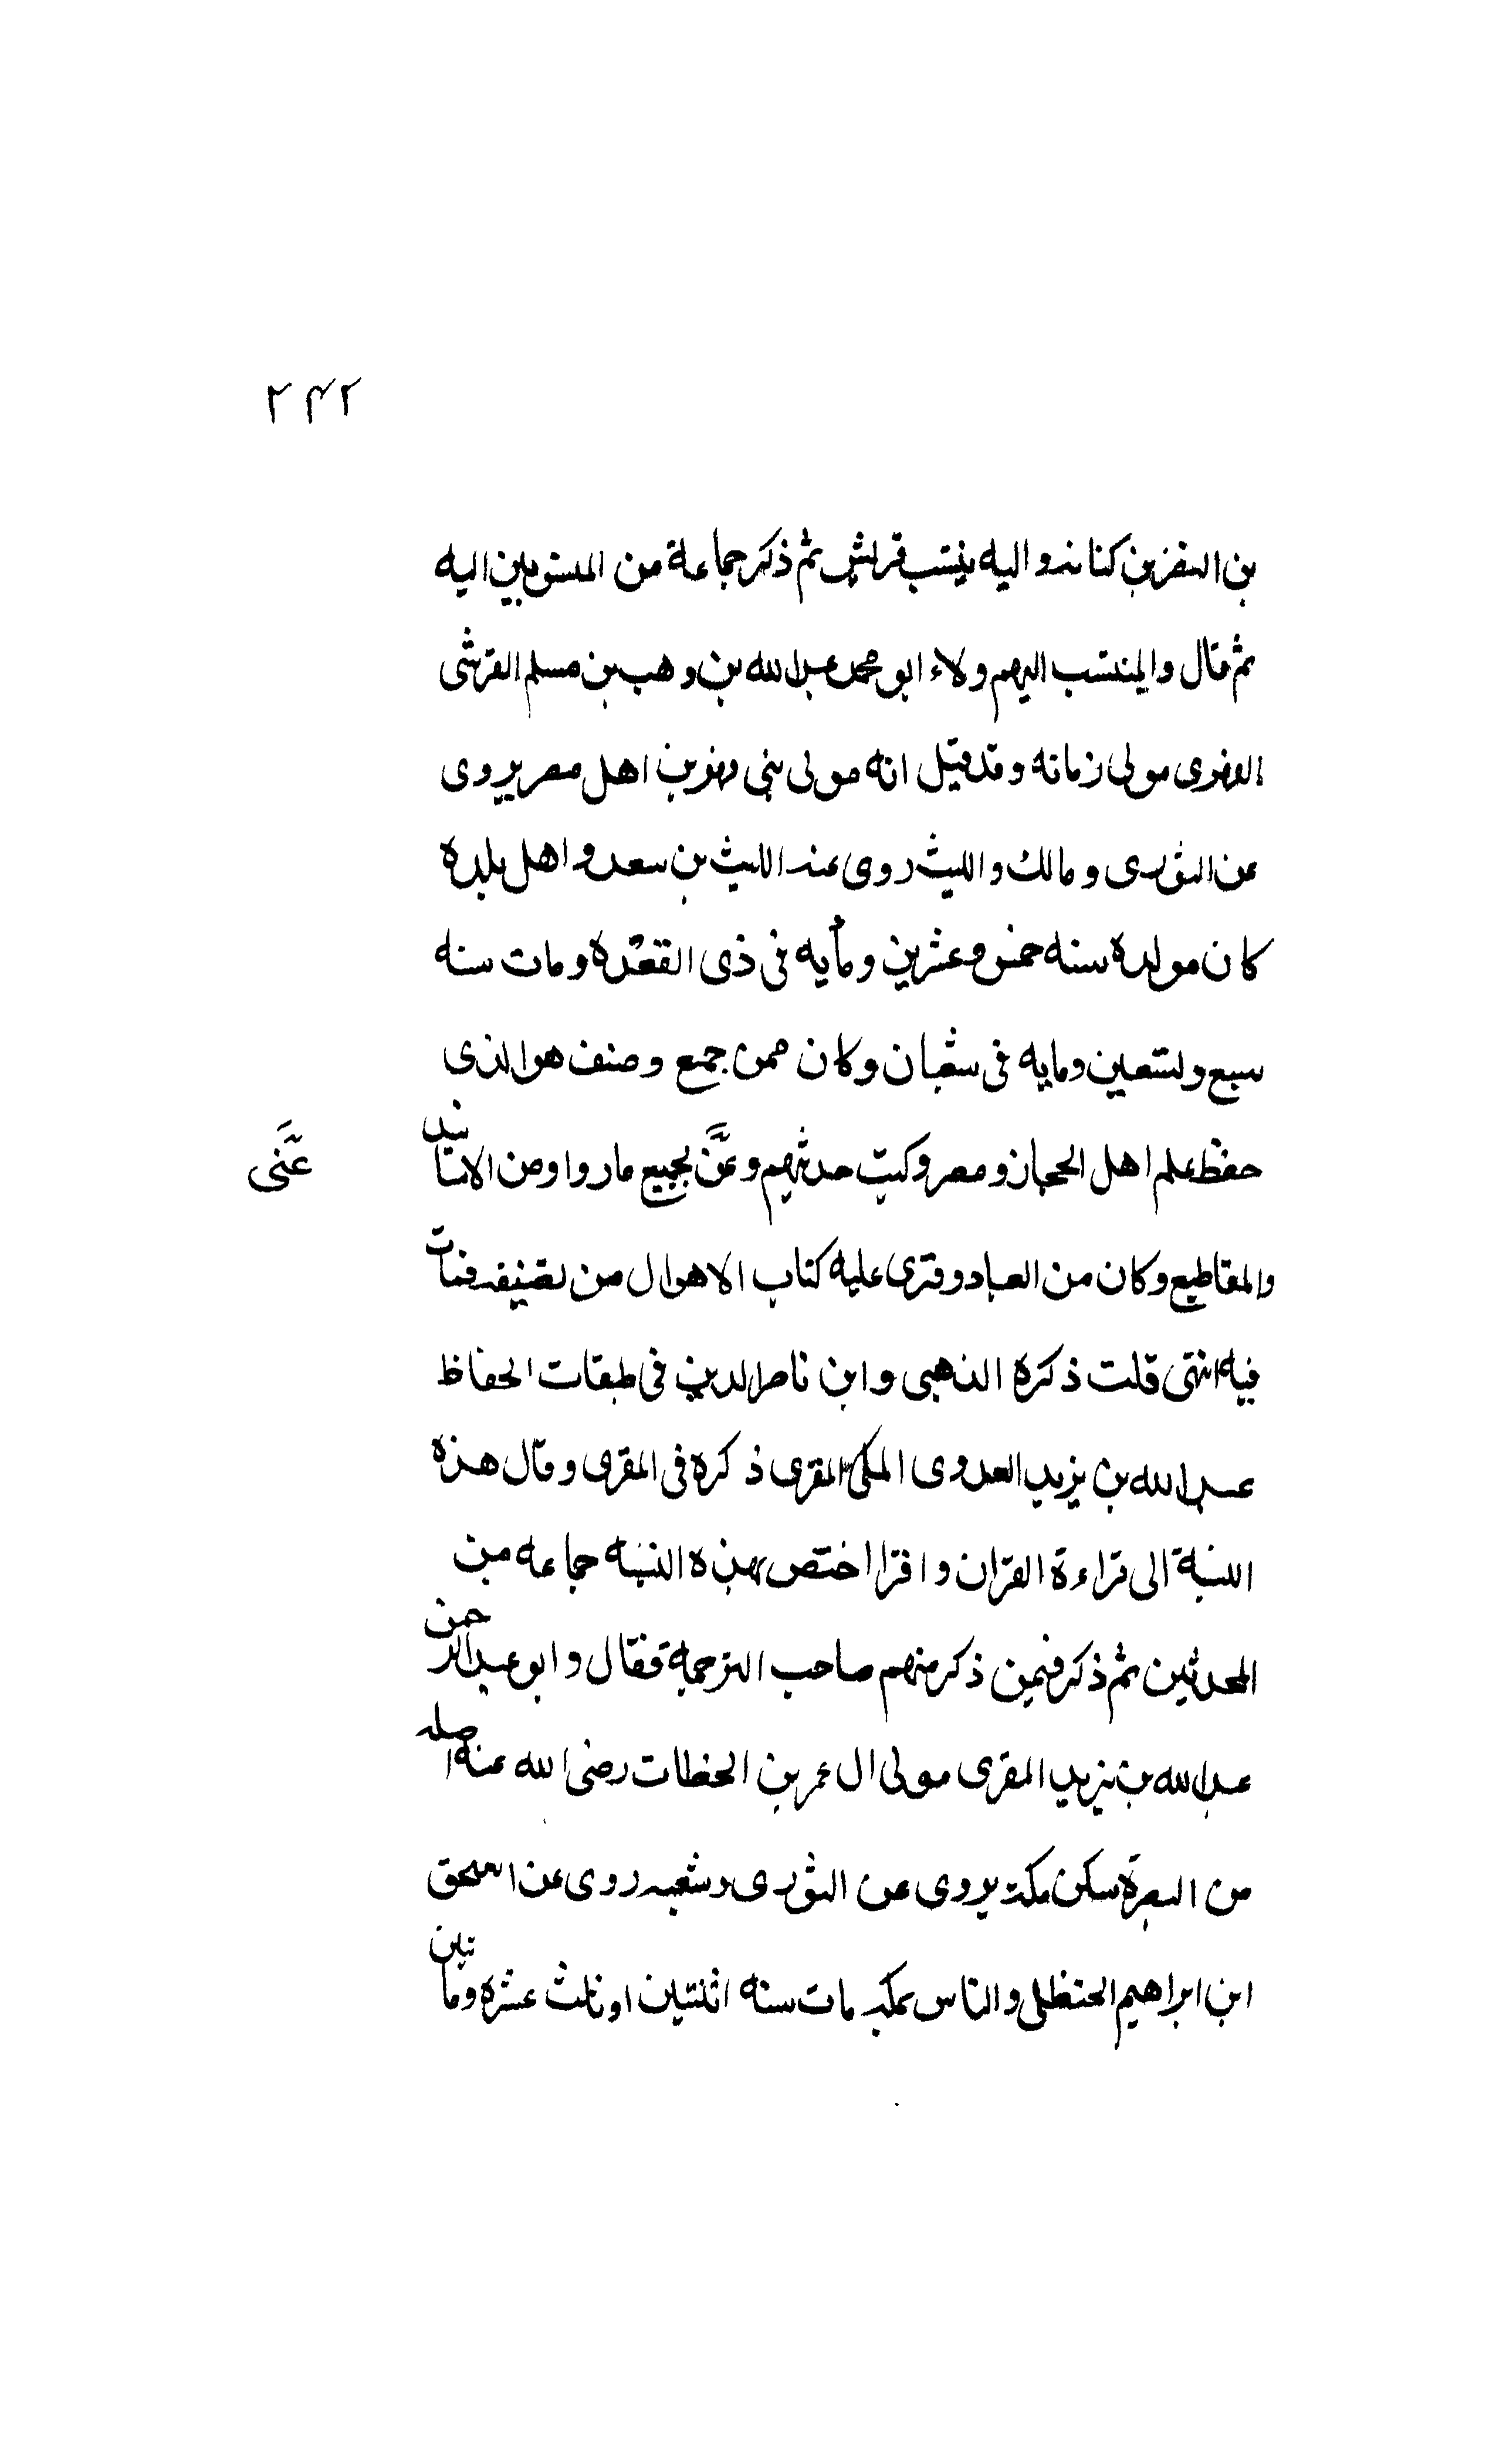 ٢٤٢
بن النضر بن كنانه واليه ينتسب قريش ثم ذكر جماعة من المنسوبين اليه
ثم قال والمنتسب اليهم ولاء ابو محمد عبد الله بن وهب بن مسلم القرشى
الفهرى مولى زمانه وقد قيل انه مولى بنى فهر من اهل مصر يروى
عن الثورى ومالك والليث روى عنه الليث بن سعد واهل بلده
كان مولده سنه خمس وعشرين ومأيه فى ذى القعدة ومات سنه
سبع وتسعين ومايه فى شعبان وكان ممن جمع وصنف هو الذى
حفظ علم اهل الحجاز ومصر وكتب حديثهم وعَنَّى بجميع ما رووا من الاسانيد
عَنَّى
والمقاطيع وكان من العباد وقرى عليه كتاب الاهوال من تصنيفه فمات
فيه انتهى قلت ذكره الذهبى وابن ناصر الدين فى طبقات الحفاظ
عبد الله بن يزيد العدوى المكى المقرى ذكره فى المقرى وقال هذه
النسبة الى قراءة القران واقرا اختص بهذه النسبه جماعه من
المحدثين ثم ذكر فيمن ذكر منهم صاحب الترجمة فقال وابو عبد الرحمن
عبد الله بن يزيد المقرى مولى ال عمر بن الخطاب رضى الله عنه اصله
من البصرة سكن مكة يروى عن الثورى وشعبه روى عن اسحق
ابن ابراهيم الحنظلى والناس بمكه مات سنه اثنتين او ثلث عشره ومأتين